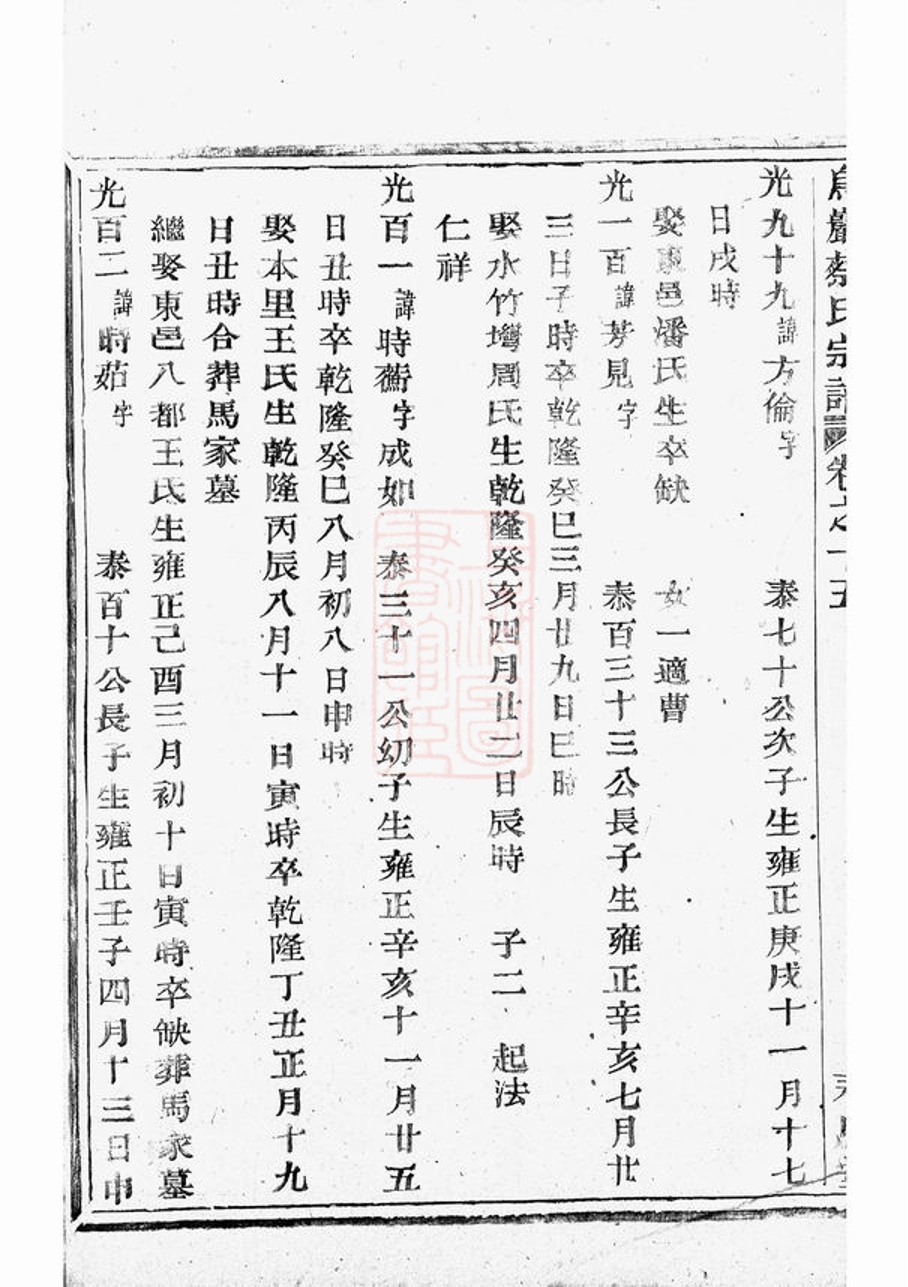 烏巖蔡氏宗譜 卷之十五
光九十九諱方倫字 泰七十公次子生雍正庚戌十一月十七
日戌時
娶東邑潘氏生卒缺 女一適曹
光一百諱芳見字 泰百三十三公長子生雍正辛亥七月廿
三日子時卒乾隆癸巳三月廿九日巳時
娶水竹塆周氏生乾隆癸亥四月廿二日辰時 子二 起法
仁祥
光百一諱時衢字成如 泰三十一公幼子生雍正辛亥十一月廿五
日丑時卒乾隆癸巳八月初八日申時
娶本里王氏生乾隆丙辰八月十一日寅時卒乾隆丁丑正月十九
日丑時合葬馬家墓
繼娶東邑八都王氏生雍正己酉三月初十日寅時卒缺葬馬家墓
光百二諱時茹字 泰百十公長子生雍正壬子四月十三日申
上海圖書館藏